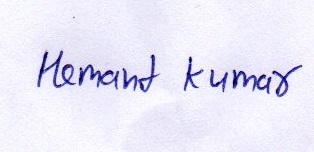 Hemant Kumar